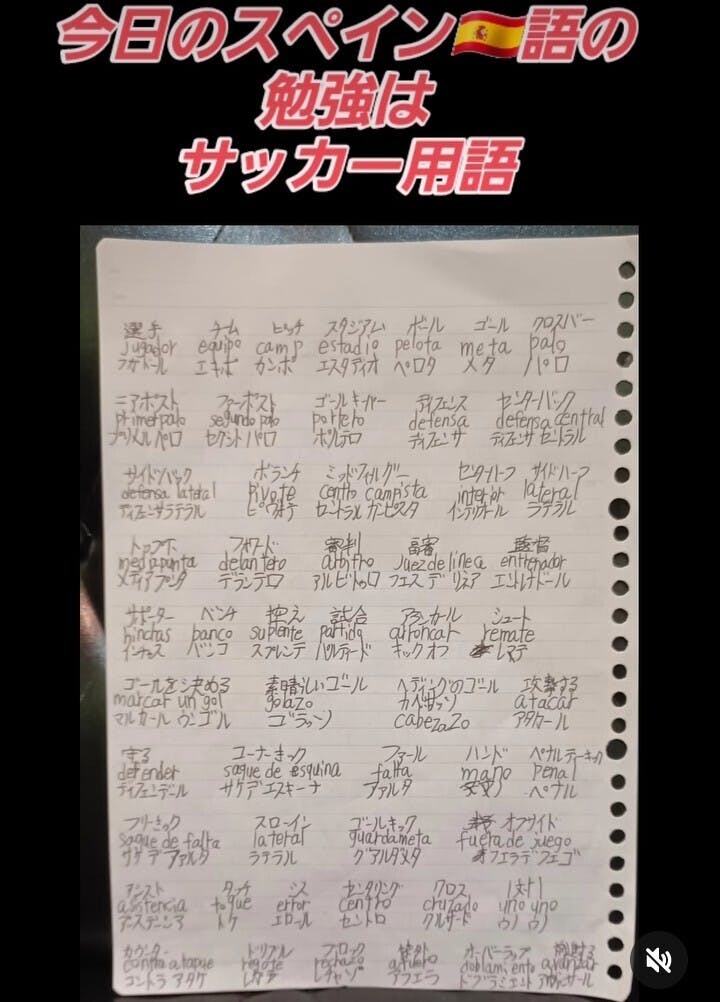 今日のスペイン🇪🇸語の
勉強は
サッカー用語
選手 チーム ピッチ スタジアム ボール ゴール クロスバー
jugador equipo camp estadio pelota meta palo
フガドール エキポ カンポ エスタディオ ペロタ メタ パロ
ニアポスト ファーポスト ゴールキーパー ディフェンス センターバック
primer palo segundo palo portero defensa defensa central
プリメルパロ セグントパロ ポルテロ ディフェンサ ディフェンサ セントラル
サイドバック ボランチ ミッドフィルダー センターハーフ サイドハーフ
defensa lateral pivote centro campista interior lateral
ディフェンサラテラル ピヴォテ セントラル カンピスタ インテリオール ラテラル
トップ下 フォワード 審判 副審 監督
mediapunta delantero arbitro juez de linea entrenador
メディアプンタ デランテロ アルビトゥロ フエス デ リネア エントレナドール
サポーター ベンチ 控え 試合 シュート
hinchas banco suplente partido arroncar remate
インチャス バンコ スプレンテ パルティード キックオフ レマテ
ゴールを決める 素晴らしいゴール ヘディングのゴール 攻撃する
marcar un gol golazo カベサソン atacar
マルカール ウン ゴル ゴラッソン cabezazo アタカール
守る コーナーキック ファール ハンド ペナルティーキック
defender saque de esquina falta mano penal
ディフェンデール サケ デ エスキーナ ファルタ ペナル
フリーキック スローイン ゴールキック オフサイド
saque de falta lateral guardameta fuera de juego
サケ デ ファルタ ラテラル グアルダメタ オフエラ デ フエゴ
アシスト タッチ ミス センタリング クロス 1対1
asistencia toque error centro cruzado uno uno
アシステンシア トケ エロール セントロ クルサード ウノ ウノ
カウンター ドリブル ブロック オーバーラップ
contra ataque regate rechazo afuera doblamiento avanzar
コントラ アタケ レガテ レチャソ アフエラ ドブラミエント アヴァンサール